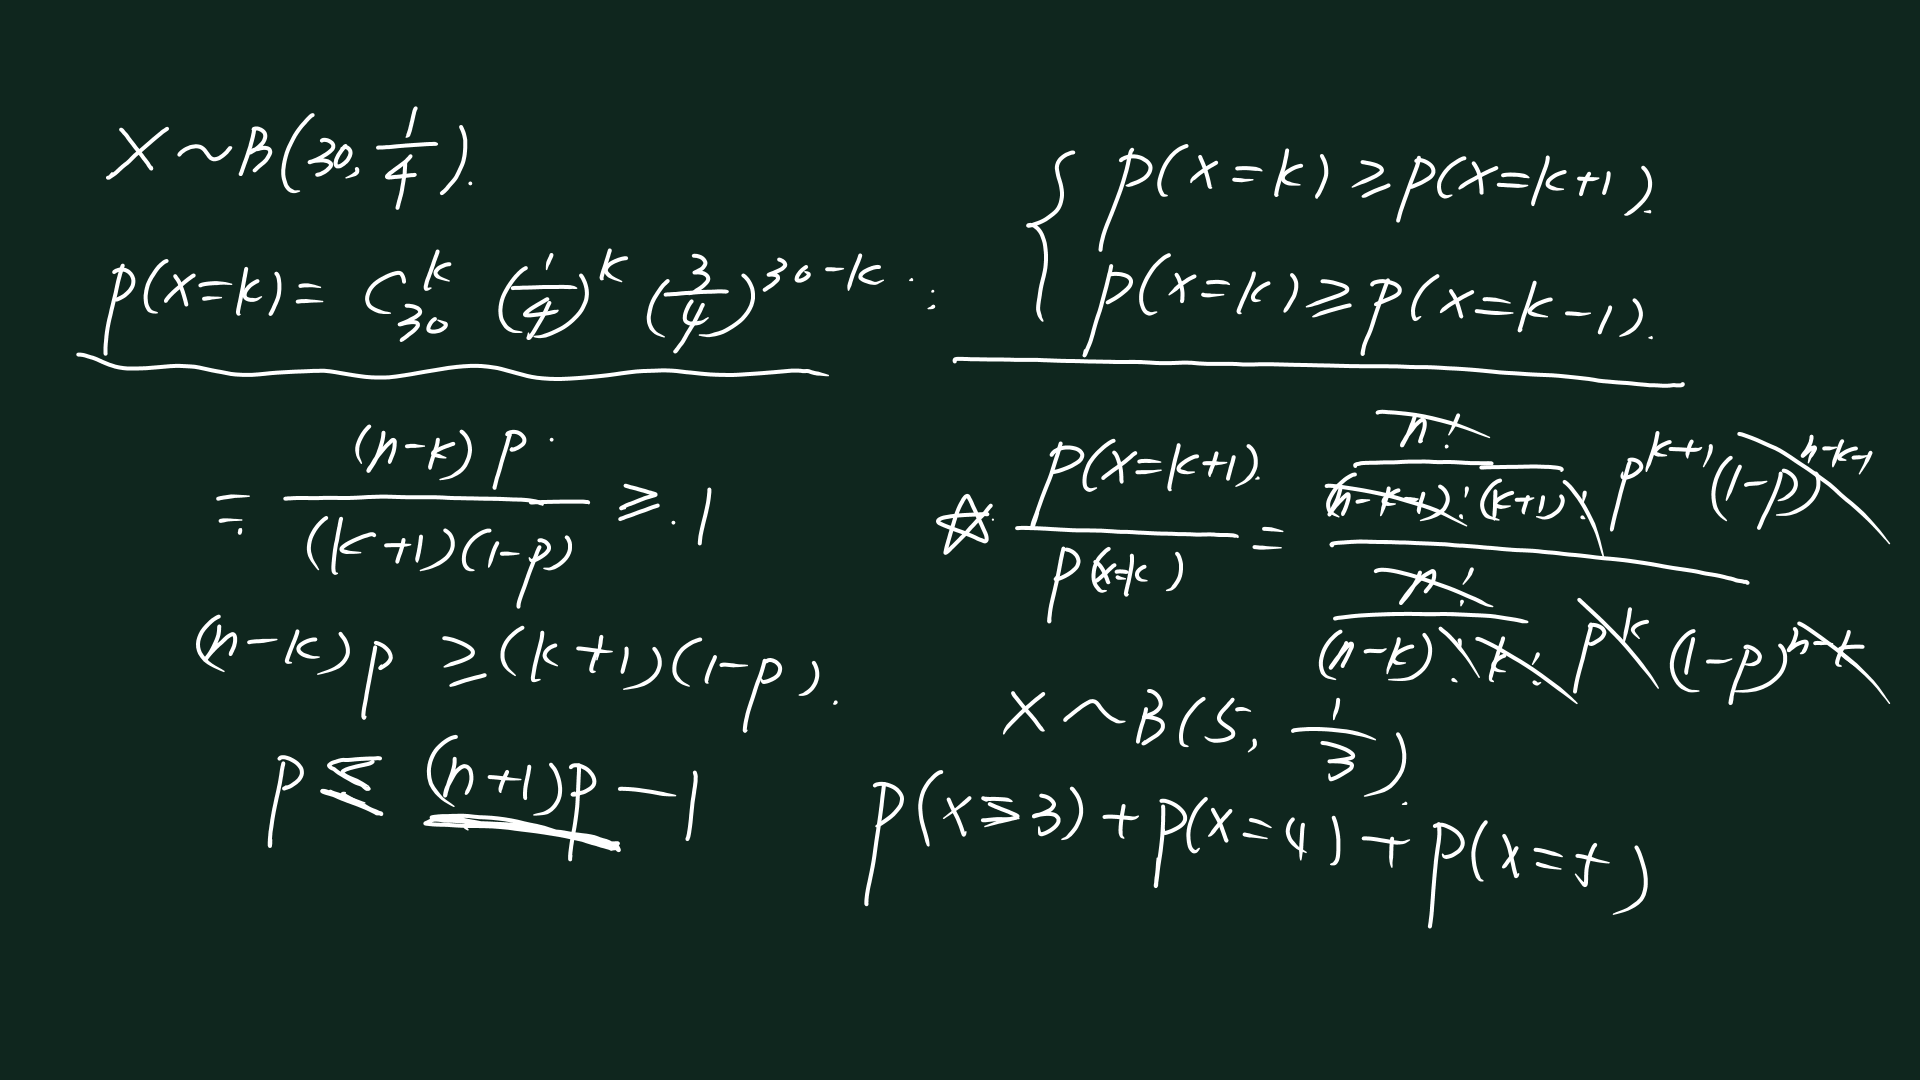 X ~ B(30, 1/4).
P(X=k) = C_30^k (1/4)^k (3/4)^{30-k}
{ P(X=k) ≥ P(X=k+1).
P(X=k) ≥ P(X=k-1).
☆ P(X=k+1) / P(X=k) = [n! / ((n-k-1)!(k+1)!) p^{k+1} (1-p)^{n-k-1}] / [n! / ((n-k)!k!) p^k (1-p)^{n-k}]
= (n-k)p / ((k+1)(1-p)) ≥ 1
(n-k)p ≥ (k+1)(1-p).
p ≤ (n+1)p - 1
X ~ B(5, 1/3).
P(X≥3) + P(X=4) + P(X=5)